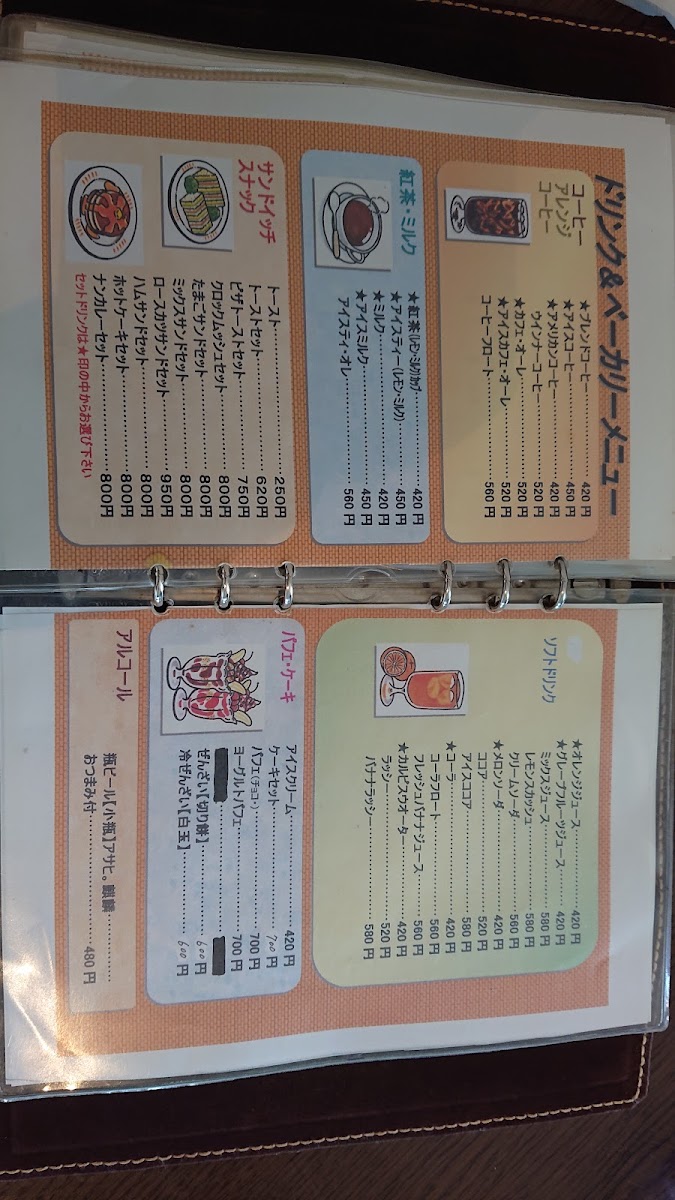 ドリンク&ベーカリーメニュー
コーヒー
アレンジ
コーヒー
★ブレンドコーヒー 420円
★アイスコーヒー 450円
★アメリカンコーヒー 420円
ウインナーコーヒー 520円
★カフェ・オーレ 520円
★アイスカフェ・オーレ 520円
コーヒーフロート 560円
紅茶・ミルク
★紅茶(レモン・ミルク)カップ 420円
★アイスティー(レモン・ミルク) 450円
★ミルク 420円
★アイスミルク 450円
アイスティ・オレ 560円
サンドイッチ
スナック
トースト 250円
トーストセット 620円
ピザトーストセット 750円
クロックムッシュセット 800円
たまごサンドセット 800円
ミックスサンドセット 800円
ロースカツサンドセット 950円
ハムサンドセット 800円
ホットケーキセット 800円
ナンカレーセット 800円
セットドリンクは★印の中からお選び下さい
ソフトドリンク
★オレンジジュース 420円
★グレープフルーツジュース 420円
ミックスジュース 580円
レモンスカッシュ 580円
クリームソーダ 560円
★メロンソーダ 420円
ココア 520円
アイスココア 580円
★コーラ 420円
コーラフロート 560円
フレッシュバナナジュース 560円
★カルピスウオーター 420円
ラッシー 520円
バナナラッシー 580円
パフェ・ケーキ
アイスクリーム 420円
ケーキセット 700円
パフェ(チョコ・) 700円
ヨーグルトパフェ 700円
ぜんざい【切り餅】 600円
冷ぜんざい【白玉】 600円
アルコール
瓶ビール【小瓶】アサヒ。麒麟
おつまみ付 480円